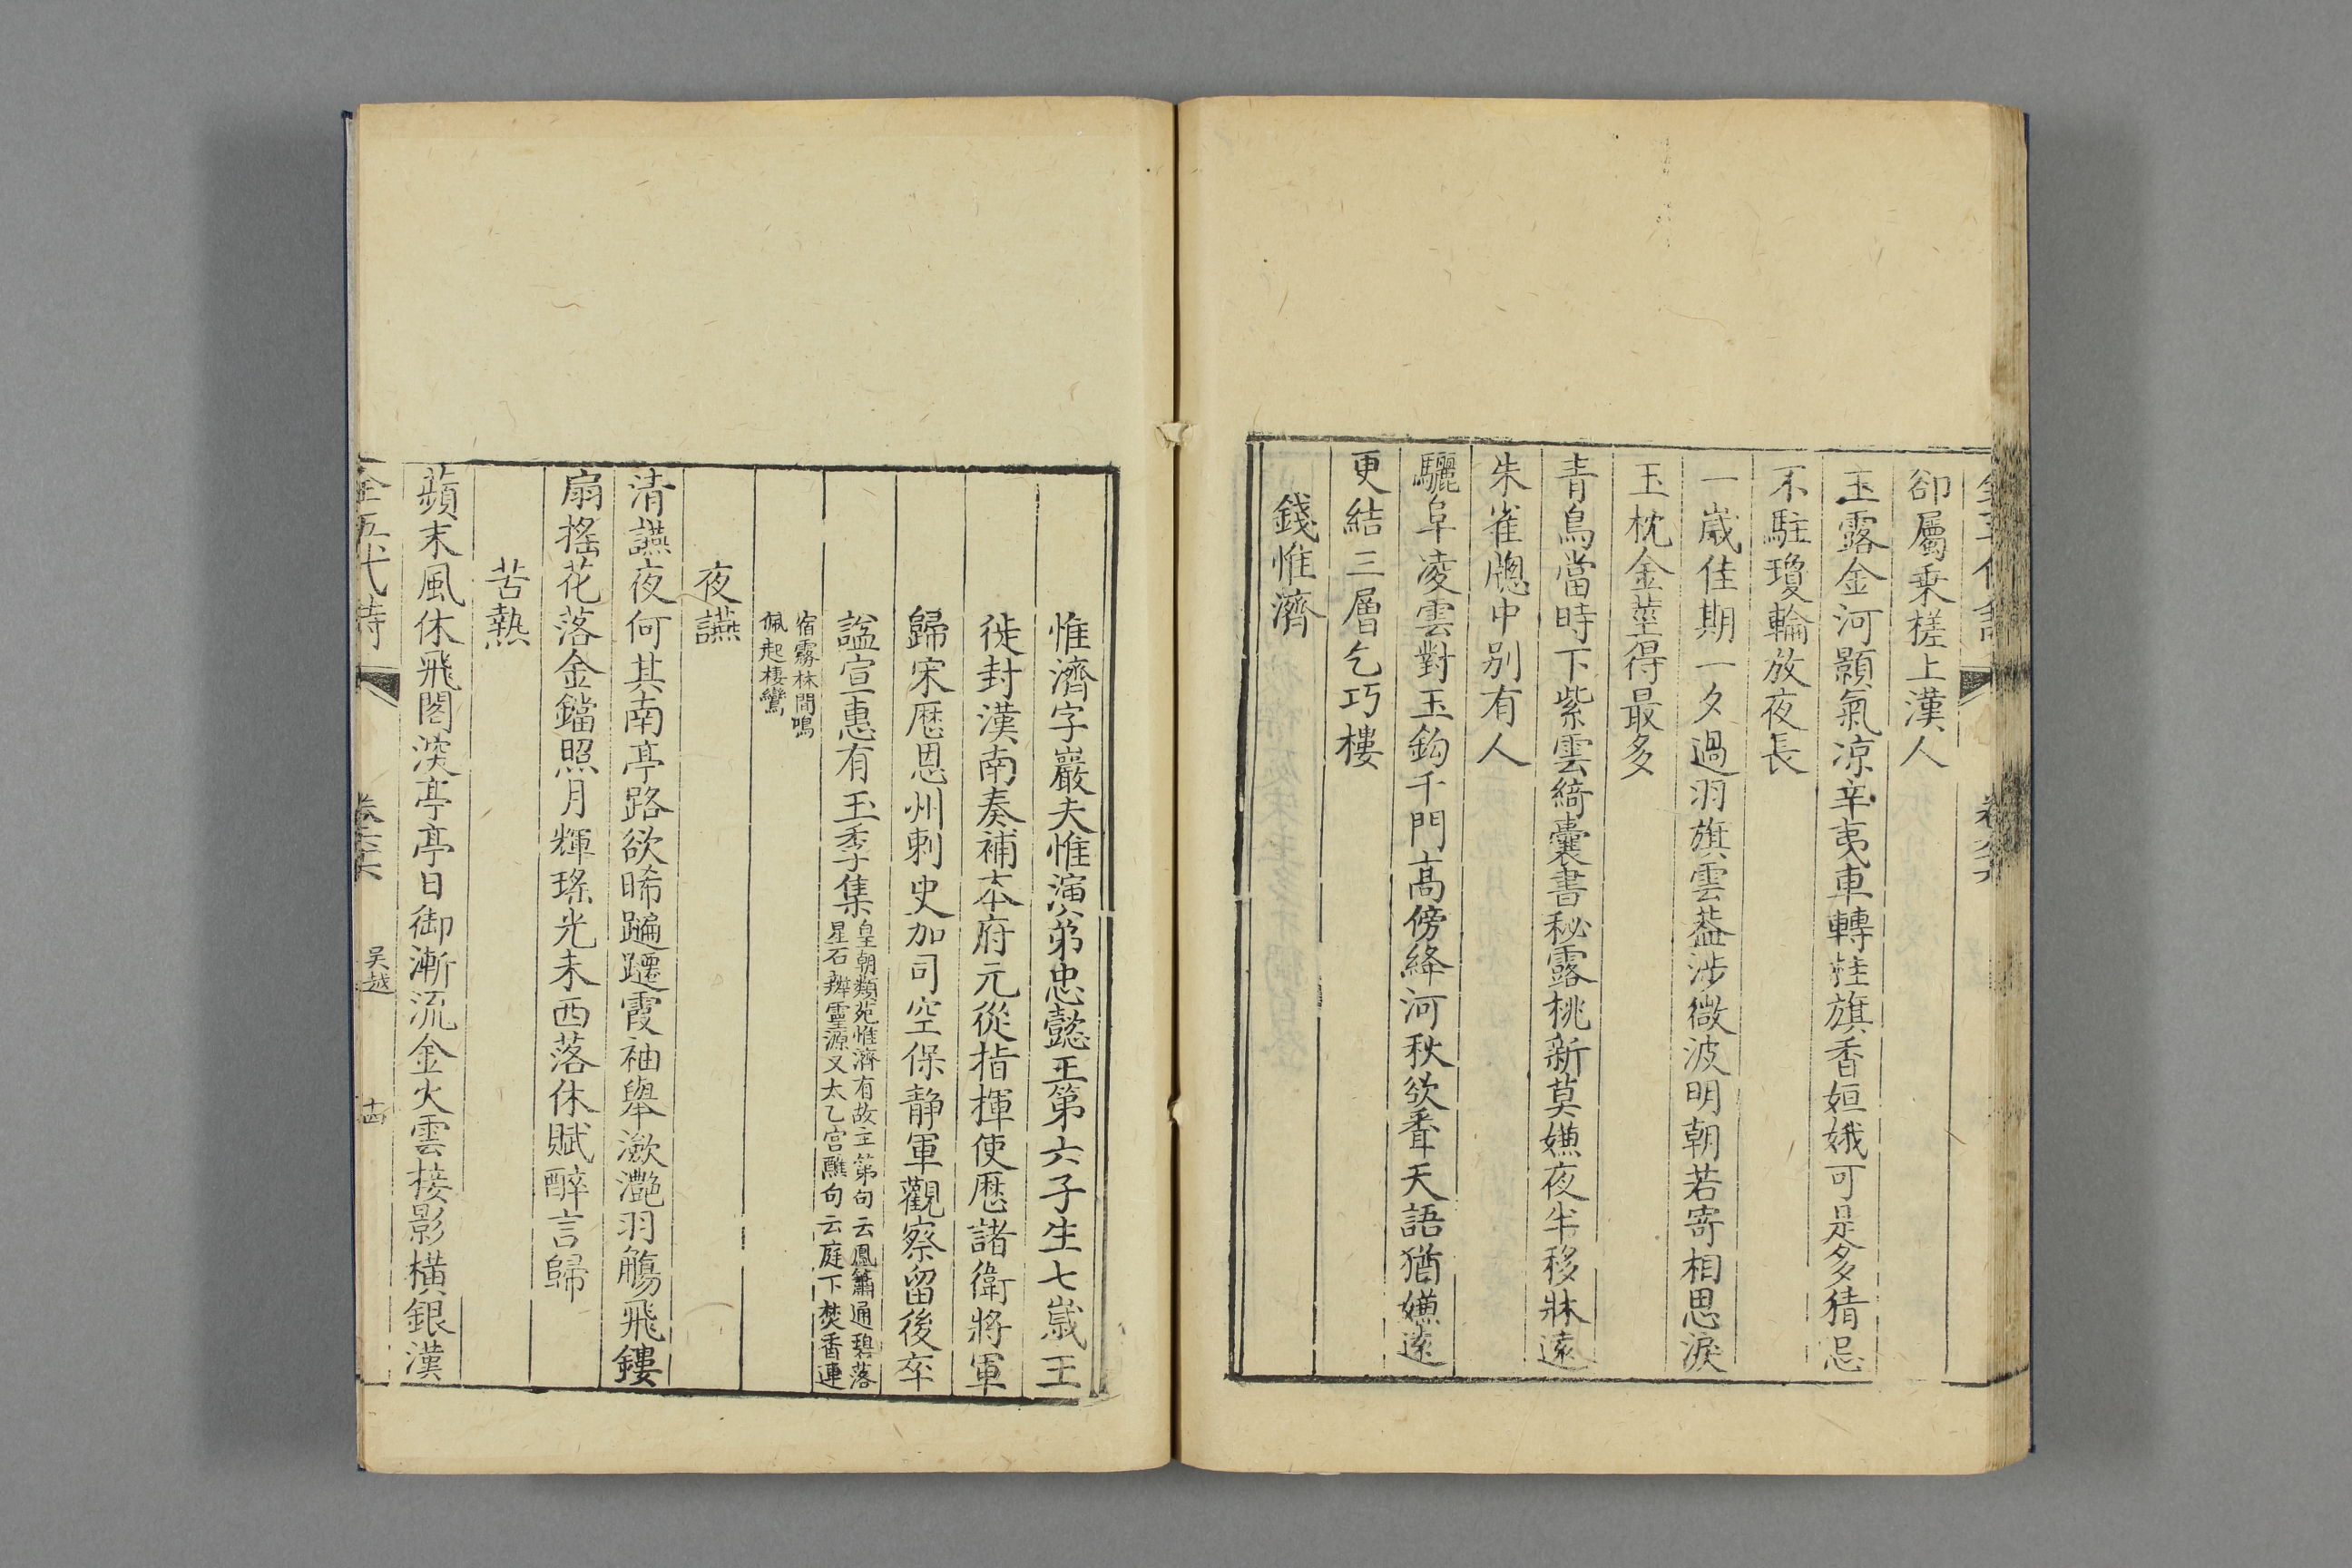 卻屬乗槎上漢人
玉露金河顥氣凉辛夷車轉桂旗香姮娥可是多猜忌
不駐瓊輪放夜長
一歲佳期一夕過羽旗雲葢涉微波明朝若寄相思淚
玉枕金莖得最多
青鳥當時下紫雲綺囊書秘露桃新莫嫌夜半移牀遠
朱雀牕中别有人
驪阜凌雲對玉鈎千門髙傍絳河秋欲聽天語猶嫌遠
更結三層乞巧樓
錢惟濟
惟濟字巖夫惟演弟忠懿王第六子生七歲王
徙封漢南奏補本府元從指揮使歴諸衛將軍
歸宋歴恩州刺史加司空保静軍觀察留後卒
諡宣惠有玉季集皇朝類苑惟濟有故主第句云鳳簫通碧落
星石辨靈源又太乙宫醮句云庭下焚香連
宿霧林間鳴
佩起棲鸞
夜讌
清讌夜何其南亭路欲晞蹁躚霞袖舉瀲灎羽觴飛鏤
扇搖花落金鐺照月輝瑤光未西落休賦醉言歸
苦熱
蘋末風休飛閣深亭亭日御漸流金火雲接影横銀漢
全五代詩
吴越
十四